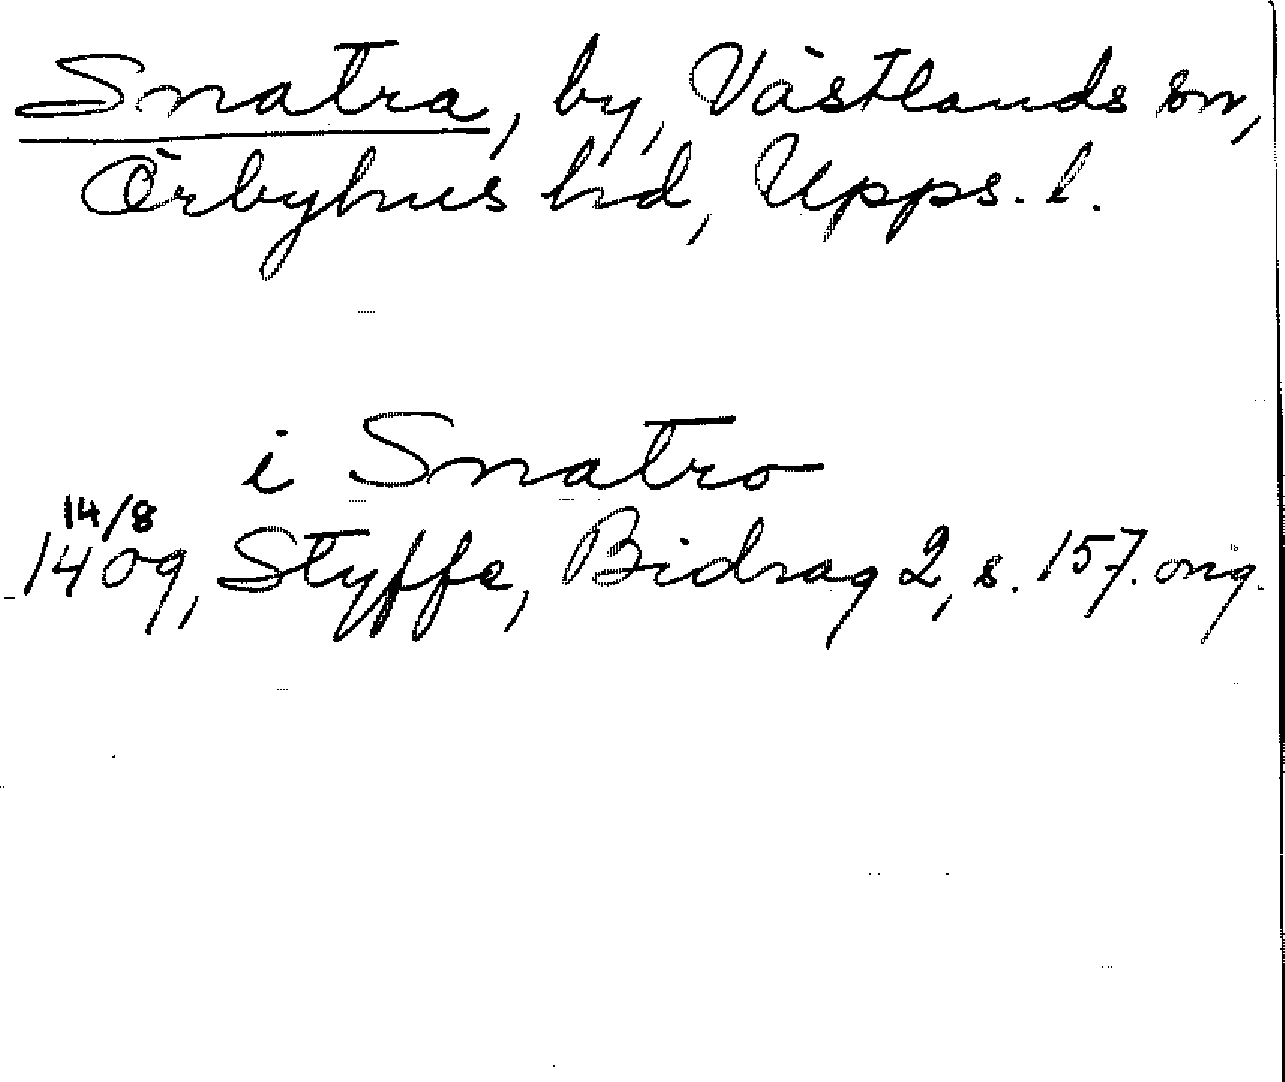 Snatra, by, Västlands sn,
Örbyhus hd, Upps. l.
i Snatro
14/8
1409, Styffe, Bidrag 2, s. 157. orig.